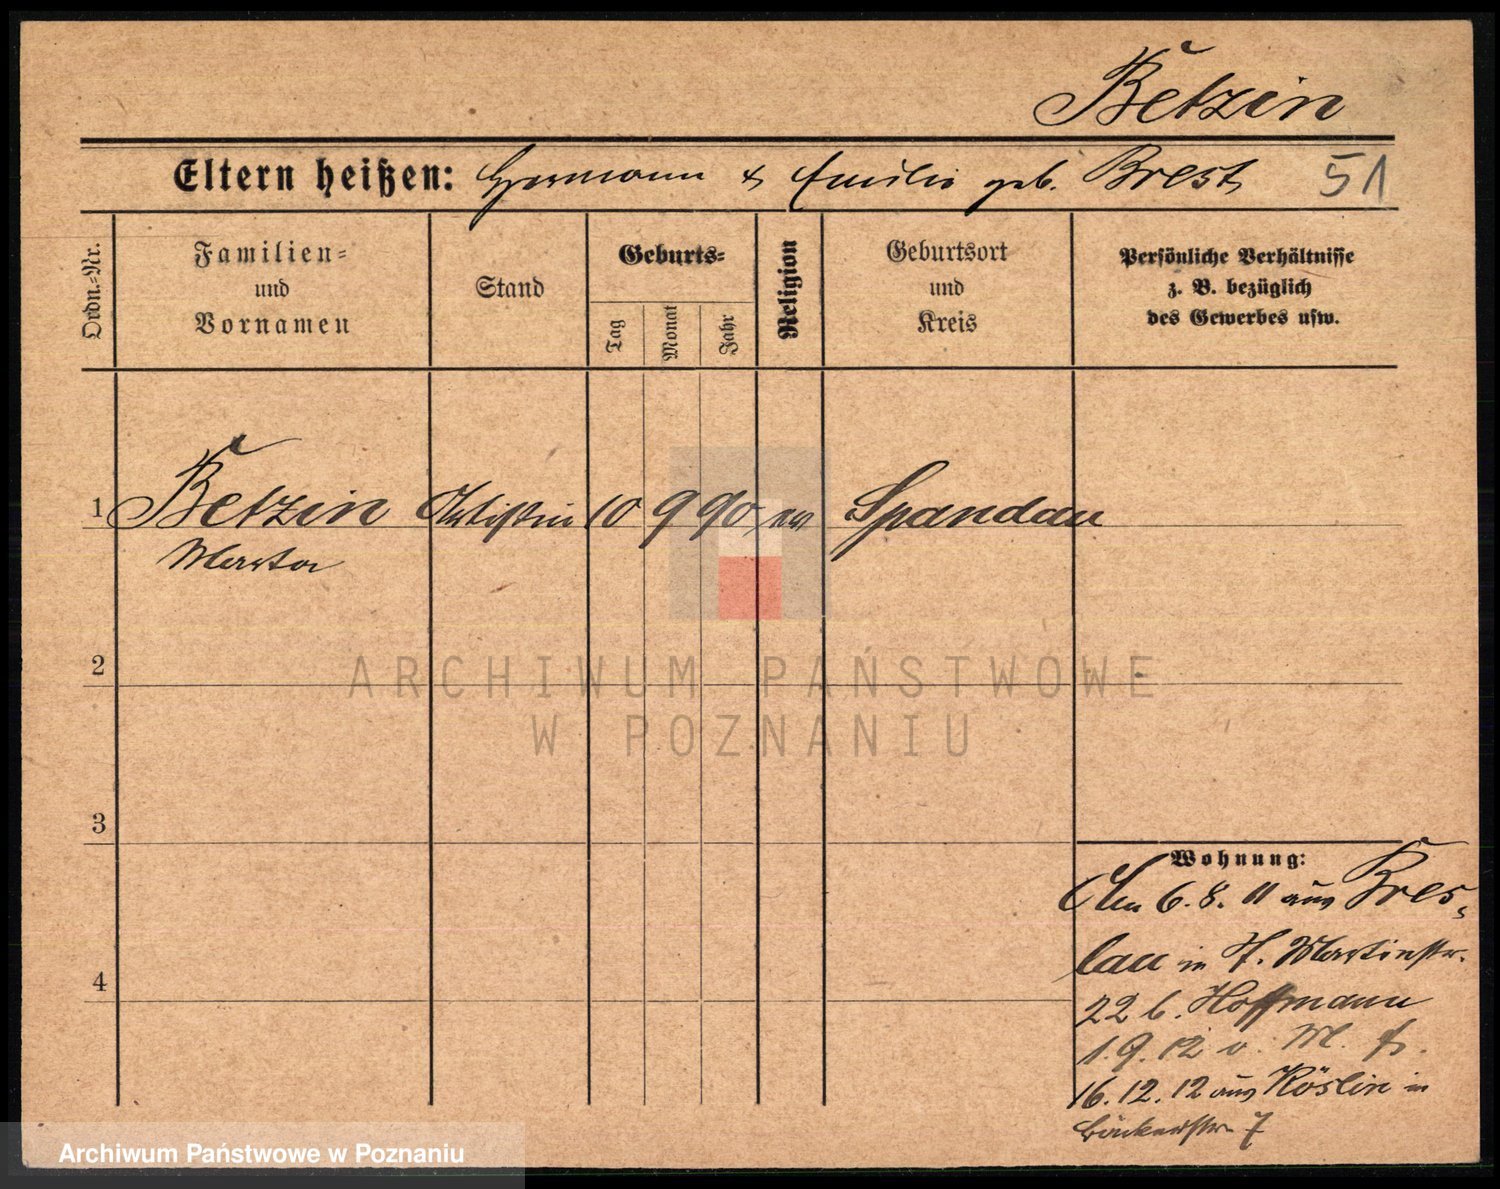 Betzin
Eltern heißen: Hermann & Emilie geb. Brest 51
Ordn.-Nr.
Familien-
und
Vornamen
Stand
Geburts-
Tag
Monat
Jahr
Religion
Geburtsort
und
Kreis
Persönliche Verhältnisse
z. B. bezüglich
des Gewerbes usw.
1 Betzin Artistin 10 9 90 ev Spandau
Marta
2
ARCHIWUM PAŃSTWOWE
W POZNANIU
3
Wohnung:
Am 6. 8. 11 aus Bres-
lau in St. Martinstr.
22 b. Hoffmann
1. 9. 12 v. M.
4
16. 12. 12 aus Köslin in
Bäckerstr. 7
Archiwum Państwowe w Poznaniu